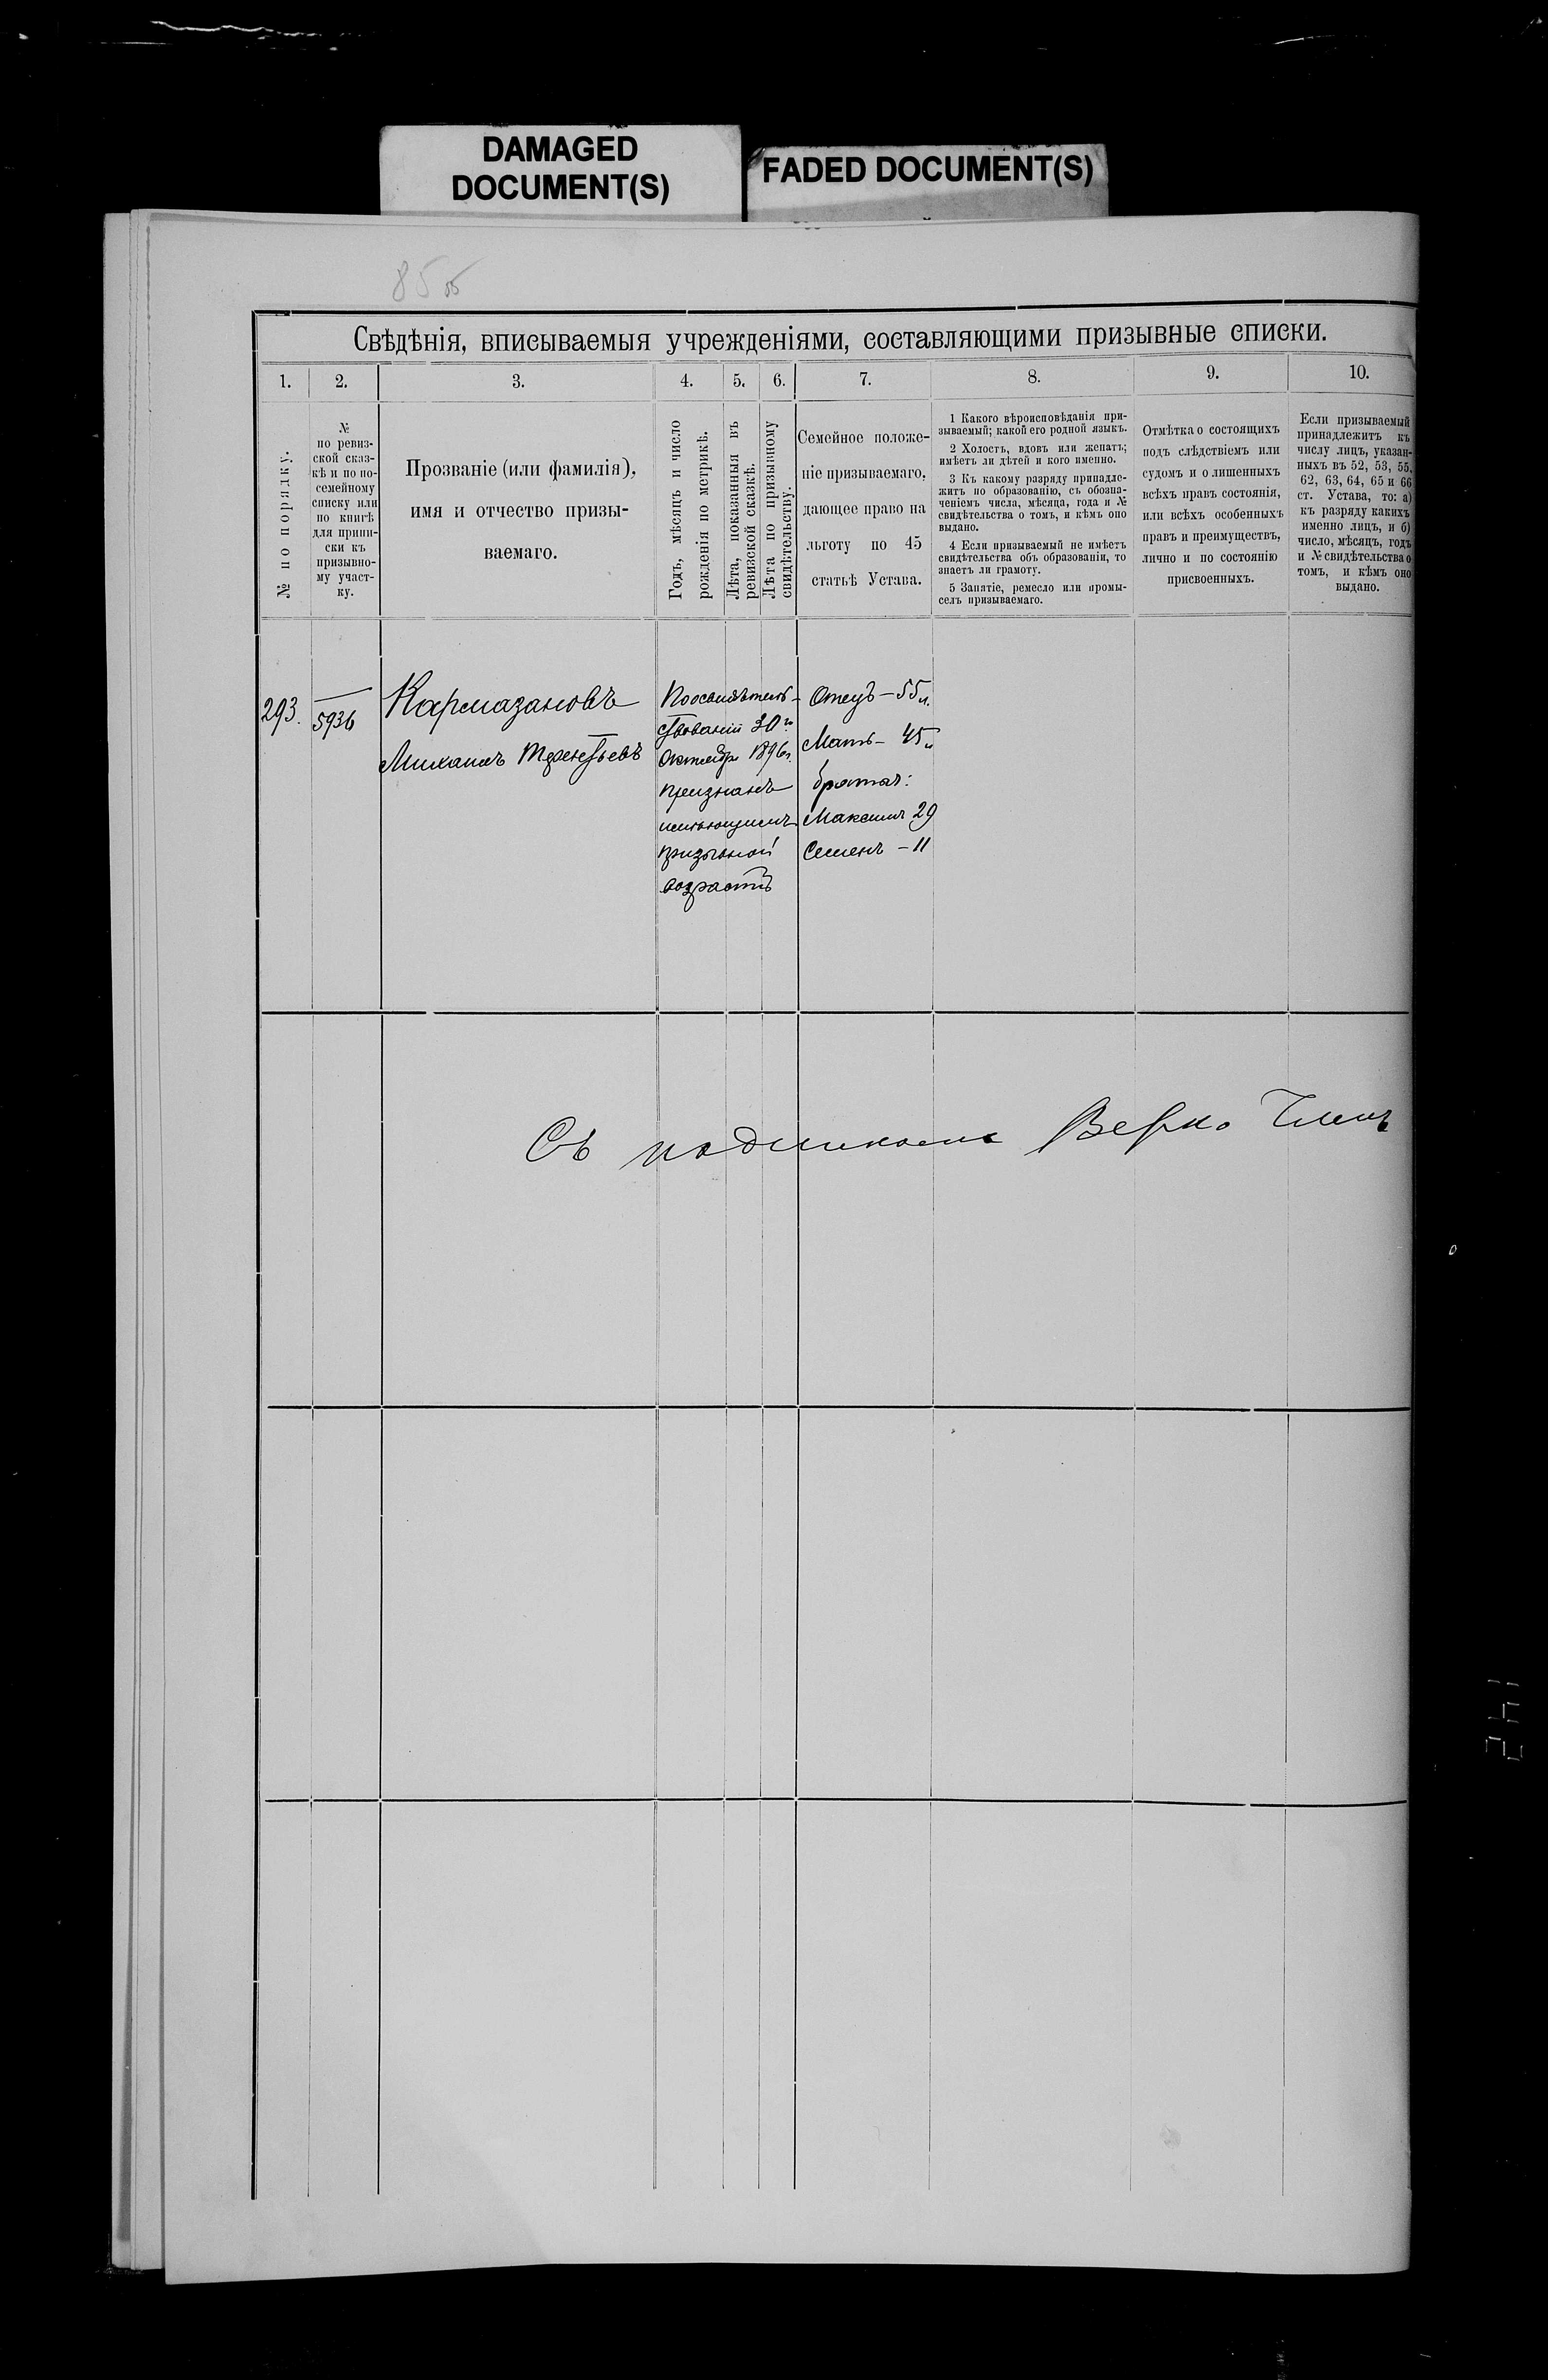 DAMAGED
DOCUMENT(S)
FADED DOCUMENT(S)
85 об
Свѣдѣнія, вписываемыя учрежденіями, составляющими призывные списки.
1. 2. 3. 4. 5. 6. 7. 8. 9. 10.
№ по порядку.
№
по ревиз-
ской сказ-
кѣ и по по-
семейному
списку или
по книгѣ
для припи-
ски къ
призывно-
му участ-
ку.
Прозваніе (или фамилія),
имя и отчество призы-
ваемаго.
Годъ, мѣсяцъ и число
рожденія по метрикѣ.
Лѣта, показанныя въ
ревизской сказкѣ.
Лѣта по призывному
свидѣтельству.
Семейное положе-
ніе призываемаго,
дающее право на
льготу по 45
статьѣ Устава.
1 Какого вѣроисповѣданія при-
зываемый; какой его родной языкъ.
2 Холостъ, вдовъ или женатъ;
имѣетъ ли дѣтей и кого именно.
3 Къ какому разряду принадле-
житъ по образованію, съ обозна-
ченіемъ числа, мѣсяца, года и №
свидѣтельства о томъ, и кѣмъ оно
выдано.
4 Если призываемый не имѣетъ
свидѣтельства объ образованіи, то
знаетъ ли грамоту.
5 Занятіе, ремесло или промы-
селъ призываемаго.
Отмѣтка о состоящихъ
подъ слѣдствіемъ или
судомъ и о лишенныхъ
всѣхъ правъ состоянія,
или всѣхъ особенныхъ
правъ и преимуществъ,
лично и по состоянію
присвоенныхъ.
Если призываемый
принадлежитъ къ
числу лицъ, указан-
ныхъ въ 52, 53, 55,
62, 63, 64, 65 и 66
ст. Устава, то: а)
къ разряду какихъ
именно лицъ, и б)
число, мѣсяцъ, годъ
и № свидѣтельства о
томъ, и кѣмъ оно
выдано.
293.
5936
Кармазановъ
Михаилъ Терентьевъ
По освидѣтель-
ствованіи 30го
Октября 1896г.
признанъ
имѣющимъ
призывной
возрастъ
Отецъ – 55 л.
Мать – 45 "
братья:
Максимъ 29
Семенъ – 11
Съ подлиннымъ Вѣрно Членъ
142